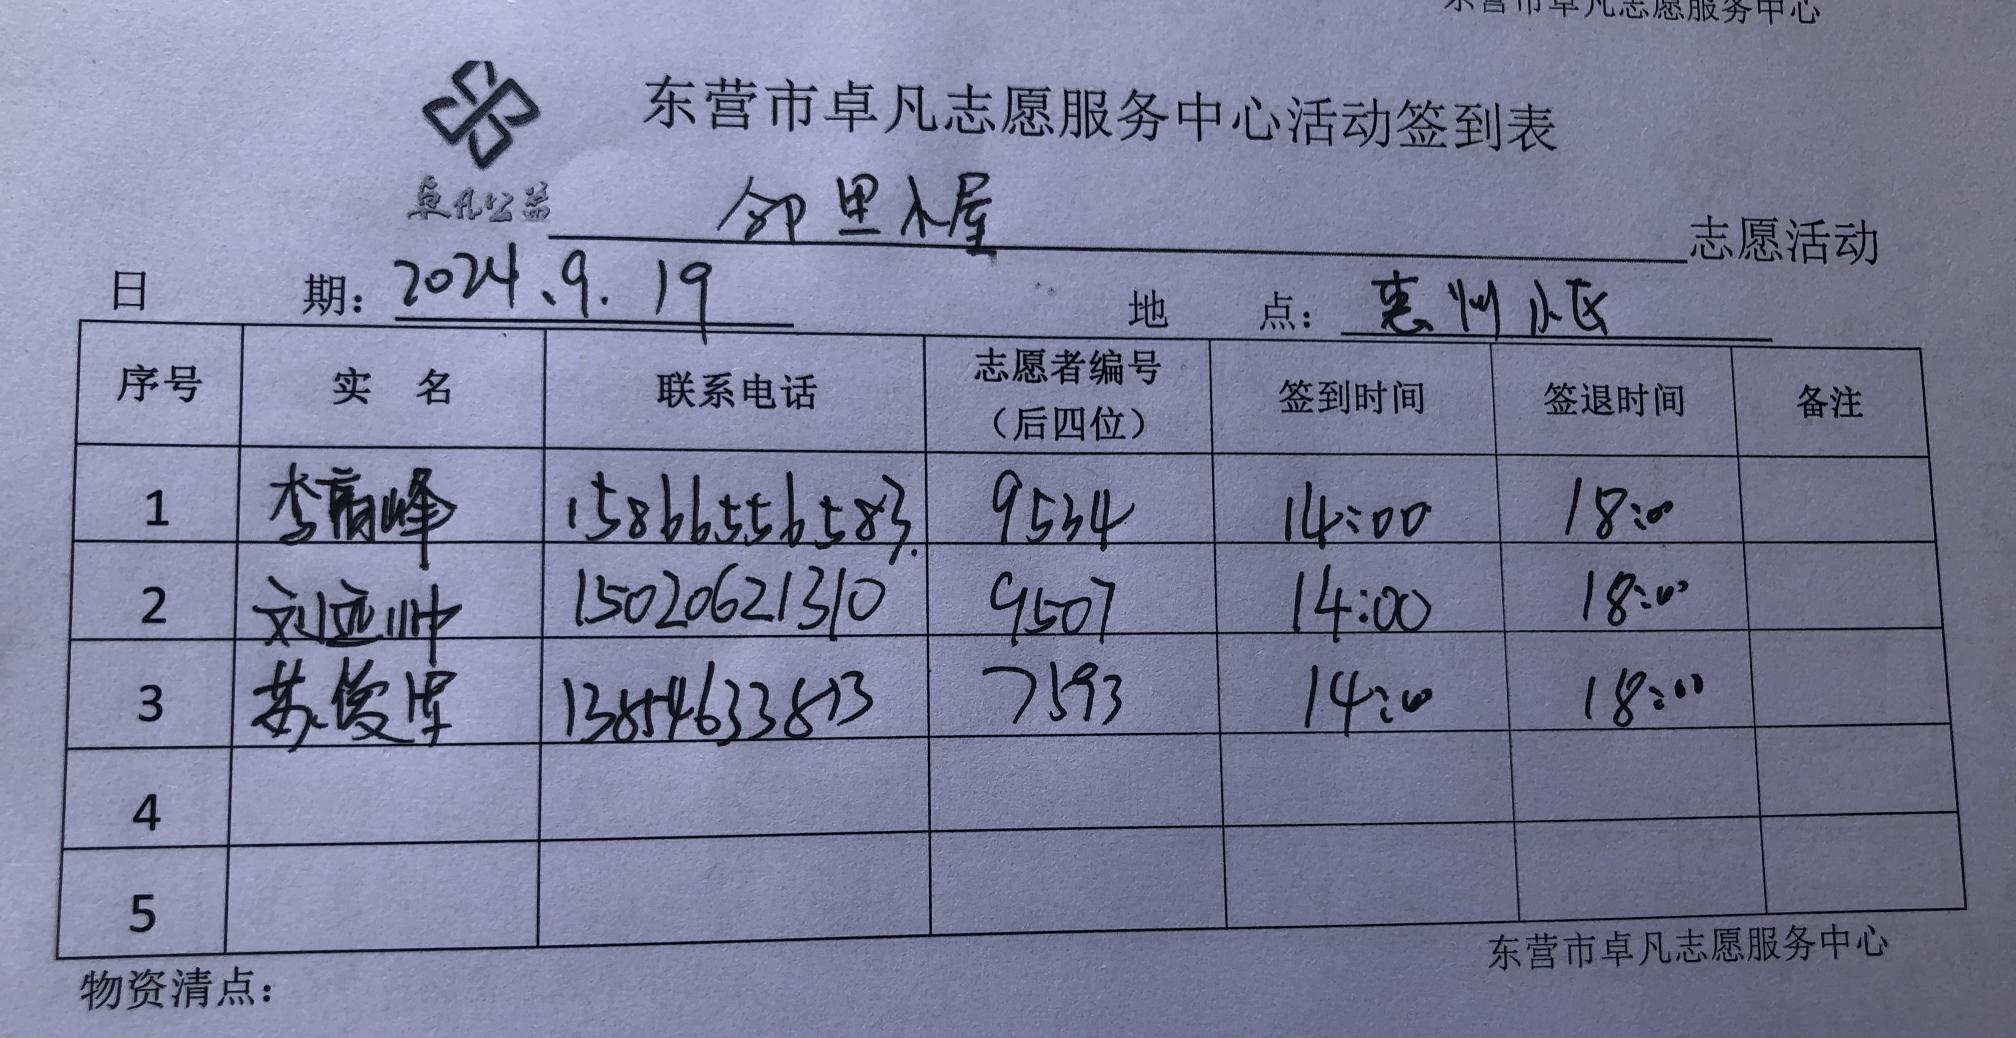 东营市卓凡志愿服务中心
东营市卓凡志愿服务中心活动签到表
卓凡公益
邻里小屋 志愿活动
日 期: 2024.9.19 地 点: 惠州小区
序号 实 名 联系电话 志愿者编号（后四位） 签到时间 签退时间 备注
1 李高峰 15866556583 9534 14:00 18:00
2 刘远帅 15020621310 9507 14:00 18:00
3 苏俊萍 13854633813 7593 14:00 18:00
4
5
东营市卓凡志愿服务中心
物资清点: